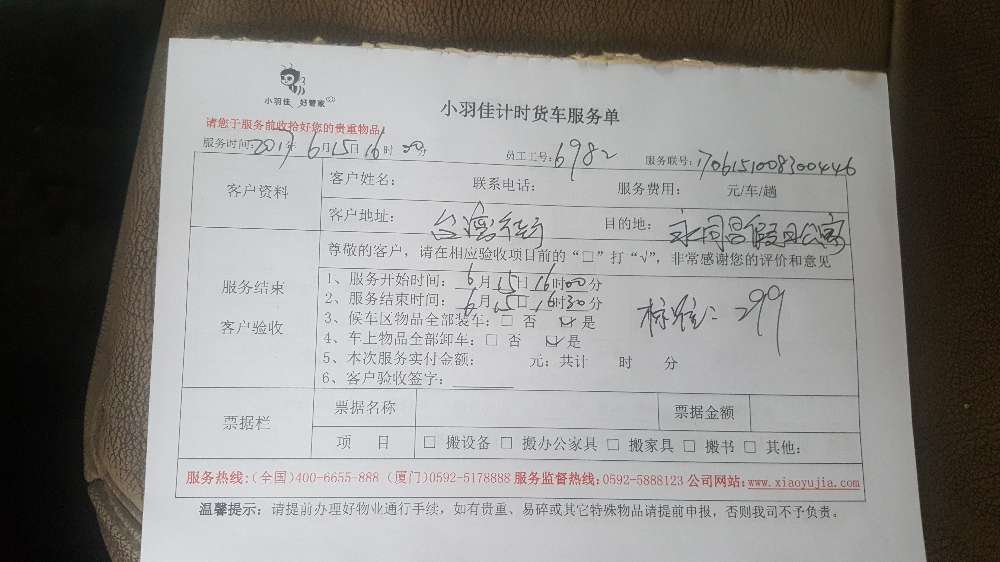 小羽佳 好管家
小羽佳计时货车服务单
请您于服务前收拾好您的贵重物品
服务时间:2017年6月15日16时00分 员工工号:6982 服务联号:1706151008300446
客户资料
客户姓名: 联系电话: 服务费用: 元/车/趟
客户地址: 台湾街 目的地: 永同昌假日公寓
服务结束
客户验收
尊敬的客户，请在相应验收项目前的“□”打“√”，非常感谢您的评价和意见
1、服务开始时间: 6月15日16时00分
2、服务结束时间: 6月15日16时30分
3、候车区物品全部装车:□ 否 ☑ 是
4、车上物品全部卸车:□ 否 ☑ 是
5、本次服务实付金额: 元;共计 时 分
6、客户验收签字:
标准: 299
票据栏
票据名称 票据金额
项 目 □ 搬设备 □ 搬办公家具 □ 搬家具 □ 搬书 □ 其他:
服务热线:(全国)400-6655-888 (厦门)0592-5178888 服务监督热线:0592-5888123 公司网站:www.xiaoyujia.com
温馨提示: 请提前办理好物业通行手续，如有贵重、易碎或其它特殊物品请提前申报，否则我司不予负责。